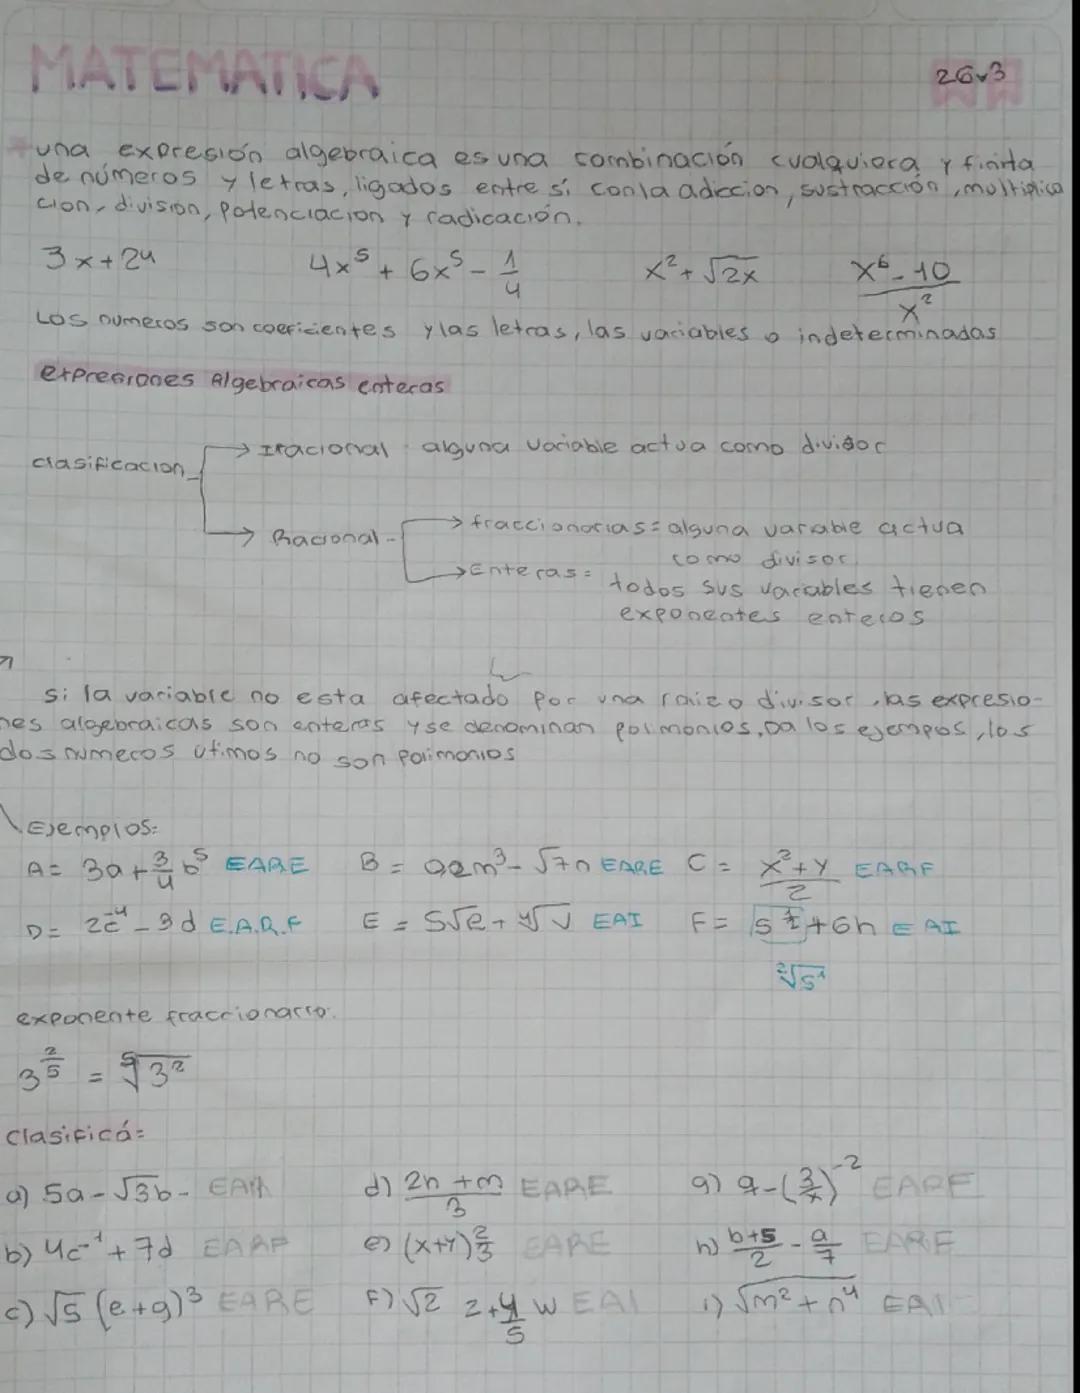 MATEMATICA
26v3
una expresión algebraica es una combinación cualquiera y finita
de números y letras, ligados entre sí con la adiccion, sustracción, multiplica
cion, division, potenciacion y radicación.
3x+24 4x⁵ + 6x⁵ - 1/4 x² + √2x (x⁶ - 10)/x²
Los numeros son coeficientes y las letras, las variables o indeterminadas
expresiones Algebraicas enteras
→ Iracional alguna variable actua como divisor
clasificacion
→ Racional - → fraccionarias = alguna variable actua
como divisor.
→ Enteras = todos sus variables tienen
exponentes enteros
si la variable no esta afectado por una raiz o divisor, las expresio-
nes algebraicas son enteras y se denominan polimonios. Da los ejempos, los
dos numeros utimos no son polimonios
Ejemplos:
A = 3a + 3/4 b⁵ EARE B = m³ - √7n EARE C = (x² + y)/2 EARF
D = 2c⁻⁴ - 9d E.A.R.F E = 5√e + ∜J EAI F = 5^(1/2) + 6h EAI
²√5¹
exponente fraccionario.
3^(2/5) = ⁵√3²
Clasificá:
a) 5a - √3b - d) (2n + m)/3 EARE g) 9 - (3/x)⁻² EARF
b) 4c⁻¹ + 7d EARF e) (x+y)^(2/3) EARE h) (b+5)/2 - a/7 EARE
c) √5 (e+g)³ EARE F) √2 z + 4/5 w EAI i) √m² + n⁴ EAI